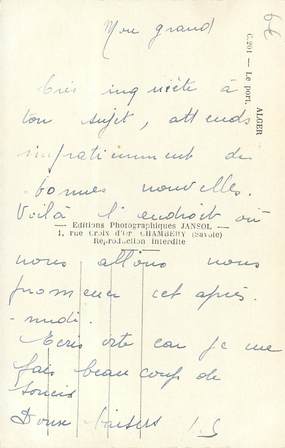 Mon grand
6€
Très inquiète à
ton sujet, attends
impatiemment de
bonnes nouvelles.
Voilà l'endroit où
nous allons nous
promener cet après-
midi.
Ecris vite car je me
fais beaucoup de
soucis
Doux baisers
ALGER
C.201 — Le port.
— Editions Photographiques JANSOL —
1, rue Croix d'or CHAMBERY (Savoie)
Reproduction interdite